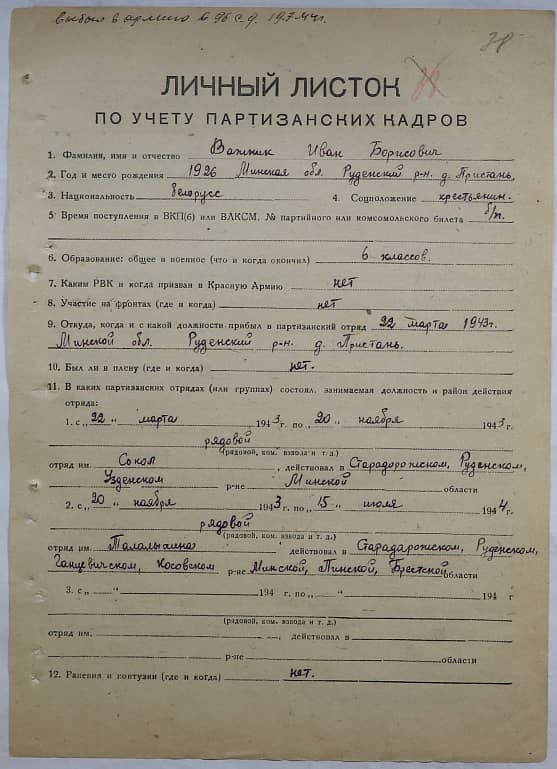 выбыл в армию в 96 с.д. 19.7.44г.
78
ЛИЧНЫЙ ЛИСТОК
ПО УЧЕТУ ПАРТИЗАНСКИХ КАДРОВ
1. Фамилия, имя и отчество Важник Иван Борисович
2. Год и место рождения 1926 Минская обл. Руденский р-н. д. Пристань,
3. Национальность белорусс 4. Соцположение крестьянин.
5 Время поступления в ВКП(б) или ВЛКСМ, № партийного или комсомольского билета б/п.
6. Образование: общее и военное (что и когда окончил) 6 классов.
7. Каким РВК и когда призван в Красную Армию нет
8. Участие на фронтах (где и когда) нет
9. Откуда, когда и с какой должности прибыл в партизанский отряд 22 марта 1943г.
Минской обл. Руденский р-н. д. Пристань.
10. Был ли в плену (где и когда) нет.
11. В каких партизанских отрядах (или группах) состоял, занимаемая должность и район действия
отряда:
1. с „22„ марта 1943 г. по „20„ ноября 1943 г.
рядовой
(рядовой, ком. взвода и т. д.)
отряд им. Сокол, действовал в Стародорожском, Руденском,
Узденском р-не Минской области
2. с „20„ ноября 1943 г. по „15„ июля 1944 г.
рядовой
(рядовой, ком. взвода и т. д.)
отряд им. Талалыхина действовал в Старадарожском, Руденском,
Ганцевичском, Косовском р-не Минской, Пинской, Брестской области
3. с „ „ 194 г. по „ „ 194 г
(рядовой, ком. взвода и т. д.)
отряд им. , действовал в
р-не области
12. Ранения и контузии (где и когда) нет.